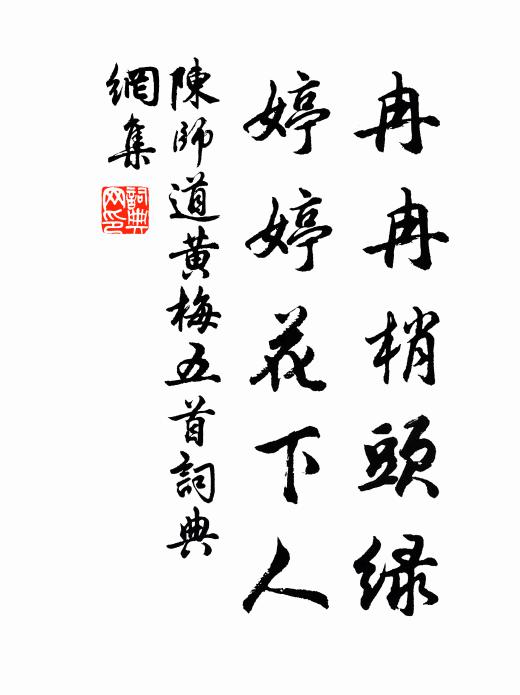 冉冉梢頭緑
婷婷花下人
陳師道黄梅五首詞典
網集
詞典網印